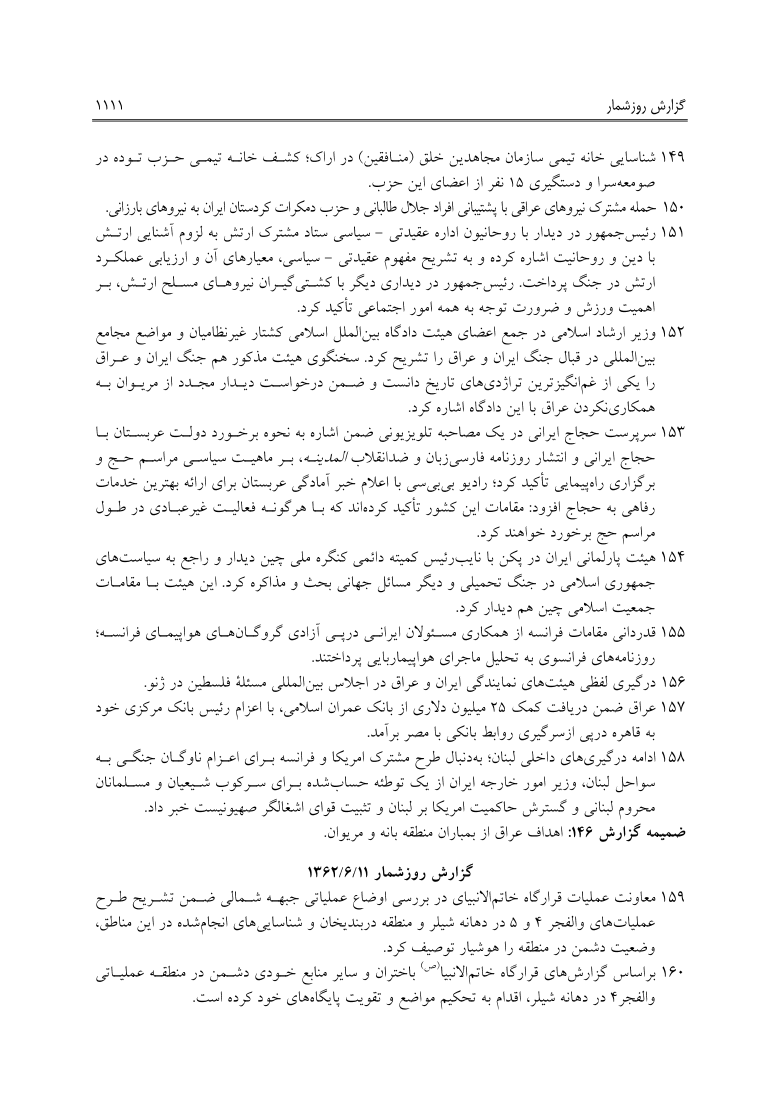 گزارش روزشمار ۱۱۱۱
۱۴۹ شناسایی خانه تیمی سازمان مجاهدین خلق (منافقین) در اراک؛ کشف خانه تیمی حزب توده در
صومعه‌سرا و دستگیری ۱۵ نفر از اعضای این حزب.
۱۵۰ حمله مشترک نیروهای عراقی با پشتیبانی افراد جلال طالبانی و حزب دمکرات کردستان ایران به نیروهای بارزانی.
۱۵۱ رئیس‌جمهور در دیدار با روحانیون اداره عقیدتی – سیاسی ستاد مشترک ارتش به لزوم آشنایی ارتش
با دین و روحانیت اشاره کرده و به تشریح مفهوم عقیدتی – سیاسی، معیارهای آن و ارزیابی عملکرد
ارتش در جنگ پرداخت. رئیس‌جمهور در دیداری دیگر با کشتی‌گیران نیروهای مسلح ارتش، بر
اهمیت ورزش و ضرورت توجه به همه امور اجتماعی تأکید کرد.
۱۵۲ وزیر ارشاد اسلامی در جمع اعضای هیئت دادگاه بین‌الملل اسلامی کشتار غیرنظامیان و مواضع مجامع
بین‌المللی در قبال جنگ ایران و عراق را تشریح کرد. سخنگوی هیئت مذکور هم جنگ ایران و عراق
را یکی از غم‌انگیزترین تراژدی‌های تاریخ دانست و ضمن درخواست دیدار مجدد از مریوان به
همکاری‌نکردن عراق با این دادگاه اشاره کرد.
۱۵۳ سرپرست حجاج ایرانی در یک مصاحبه تلویزیونی ضمن اشاره به نحوه برخورد دولت عربستان با
حجاج ایرانی و انتشار روزنامه فارسی‌زبان و ضدانقلاب المدینه، بر ماهیت سیاسی مراسم حج و
برگزاری راه‌پیمایی تأکید کرد؛ رادیو بی‌بی‌سی با اعلام خبر آمادگی عربستان برای ارائه بهترین خدمات
رفاهی به حجاج افزود: مقامات این کشور تأکید کرده‌اند که با هرگونه فعالیت غیرعبادی در طول
مراسم حج برخورد خواهند کرد.
۱۵۴ هیئت پارلمانی ایران در پکن با نایب‌رئیس کمیته دائمی کنگره ملی چین دیدار و راجع به سیاست‌های
جمهوری اسلامی در جنگ تحمیلی و دیگر مسائل جهانی بحث و مذاکره کرد. این هیئت با مقامات
جمعیت اسلامی چین هم دیدار کرد.
۱۵۵ قدردانی مقامات فرانسه از همکاری مسئولان ایرانی درپی آزادی گروگان‌های هواپیمای فرانسه؛
روزنامه‌های فرانسوی به تحلیل ماجرای هواپیماربایی پرداختند.
۱۵۶ درگیری لفظی هیئت‌های نمایندگی ایران و عراق در اجلاس بین‌المللی مسئلۀ فلسطین در ژنو.
۱۵۷ عراق ضمن دریافت کمک ۲۵ میلیون دلاری از بانک عمران اسلامی، با اعزام رئیس بانک مرکزی خود
به قاهره درپی ازسرگیری روابط بانکی با مصر برآمد.
۱۵۸ ادامه درگیری‌های داخلی لبنان؛ به‌دنبال طرح مشترک امریکا و فرانسه برای اعزام ناوگان جنگی به
سواحل لبنان، وزیر امور خارجه ایران از یک توطئه حساب‌شده برای سرکوب شیعیان و مسلمانان
محروم لبنانی و گسترش حاکمیت امریکا بر لبنان و تثبیت قوای اشغالگر صهیونیست خبر داد.
ضمیمه گزارش ۱۴۶: اهداف عراق از بمباران منطقه بانه و مریوان.
گزارش روزشمار ۱۳۶۲/۶/۱۱
۱۵۹ معاونت عملیات قرارگاه خاتم‌الانبیای در بررسی اوضاع عملیاتی جبهه شمالی ضمن تشریح طرح
عملیات‌های والفجر ۴ و ۵ در دهانه شیلر و منطقه دربندیخان و شناسایی‌های انجام‌شده در این مناطق،
وضعیت دشمن در منطقه را هوشیار توصیف کرد.
۱۶۰ براساس گزارش‌های قرارگاه خاتم‌الانبیا(ص) باختران و سایر منابع خودی دشمن در منطقه عملیاتی
والفجر۴ در دهانه شیلر، اقدام به تحکیم مواضع و تقویت پایگاه‌های خود کرده است.